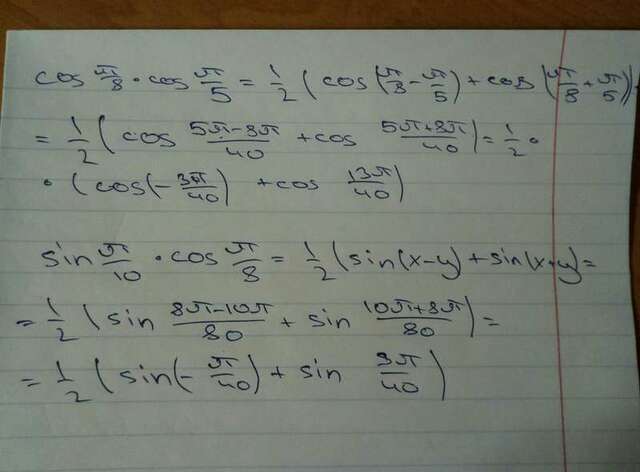 cos π/8 · cos π/5 = 1/2 (cos(π/8 - π/5) + cos(π/8 + π/5)) =
= 1/2 (cos (5π-8π)/40 + cos (5π+8π)/40) = 1/2 ·
· (cos(- 3π/40) + cos 13π/40)
sin π/10 · cos π/8 = 1/2 (sin(x-y) + sin(x+y) =
= 1/2 (sin (8π-10π)/80 + sin (10π+8π)/80) =
= 1/2 (sin(- π/40) + sin 9π/40)